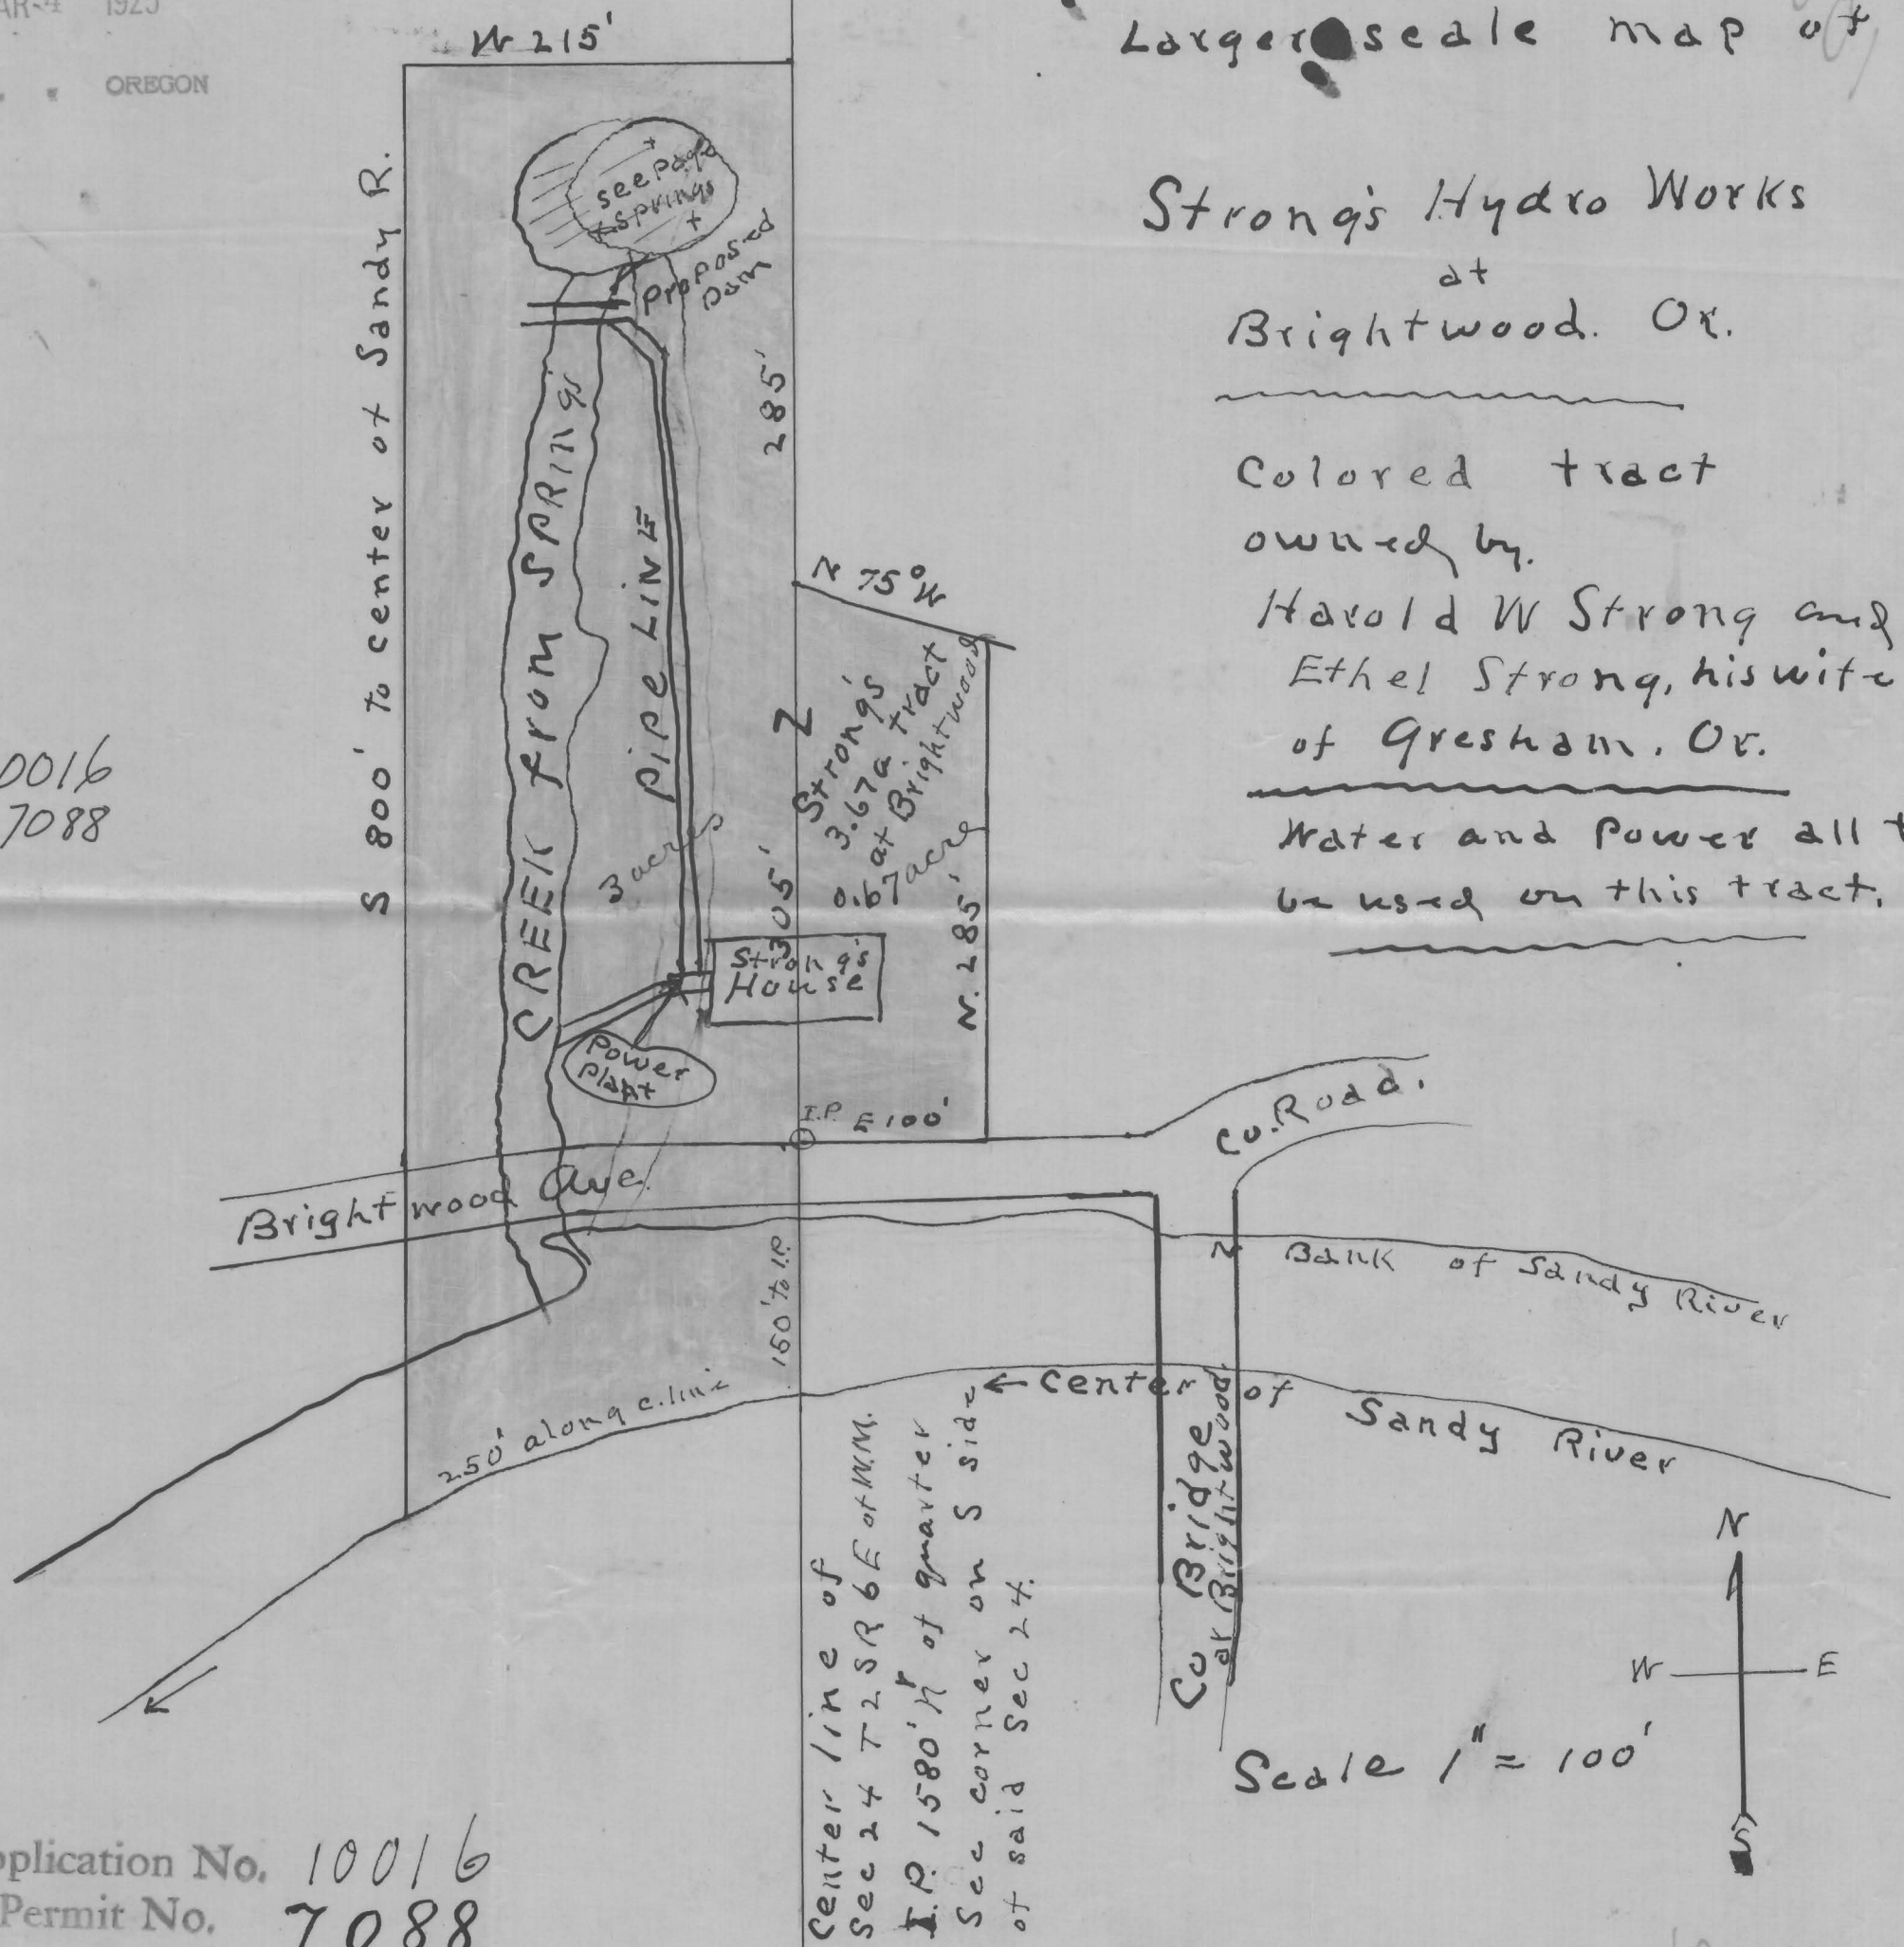 1925
OREGON
W 215'
Larger scale map of
Strong's Hydro Works
at
Brightwood. Or.
Colored tract
owned by.
Harold W Strong and
Ethel Strong, his wife
of Gresham. Or.
Water and Power all
be used on this tract.
S 800' to center of Sandy R.
0016
7088
seepage
springs
Proposed
Dam
285'
CREEK from SPRings
PiPE LiNE
3 acres
N 75° W
N
305'
Strong's
3.67a tract
at Brightwood
0.67 acre
N. 285'
Strong's
House
Power
Plant
I.P. E 100'
Co. Road.
Brightwood Ave.
N Bank of Sandy River
150' to I.P.
250' along c. line
← Center of Sandy River
Co Bridge
at Brightwood.
Center line of
Sec 24 T 2 S R 6 E of W.M.
I.P. 1580' N of quarter
Sec corner on S side
of said Sec 24.
N
W E
S
Scale 1" = 100'
pplication No. 10016
Permit No. 7088